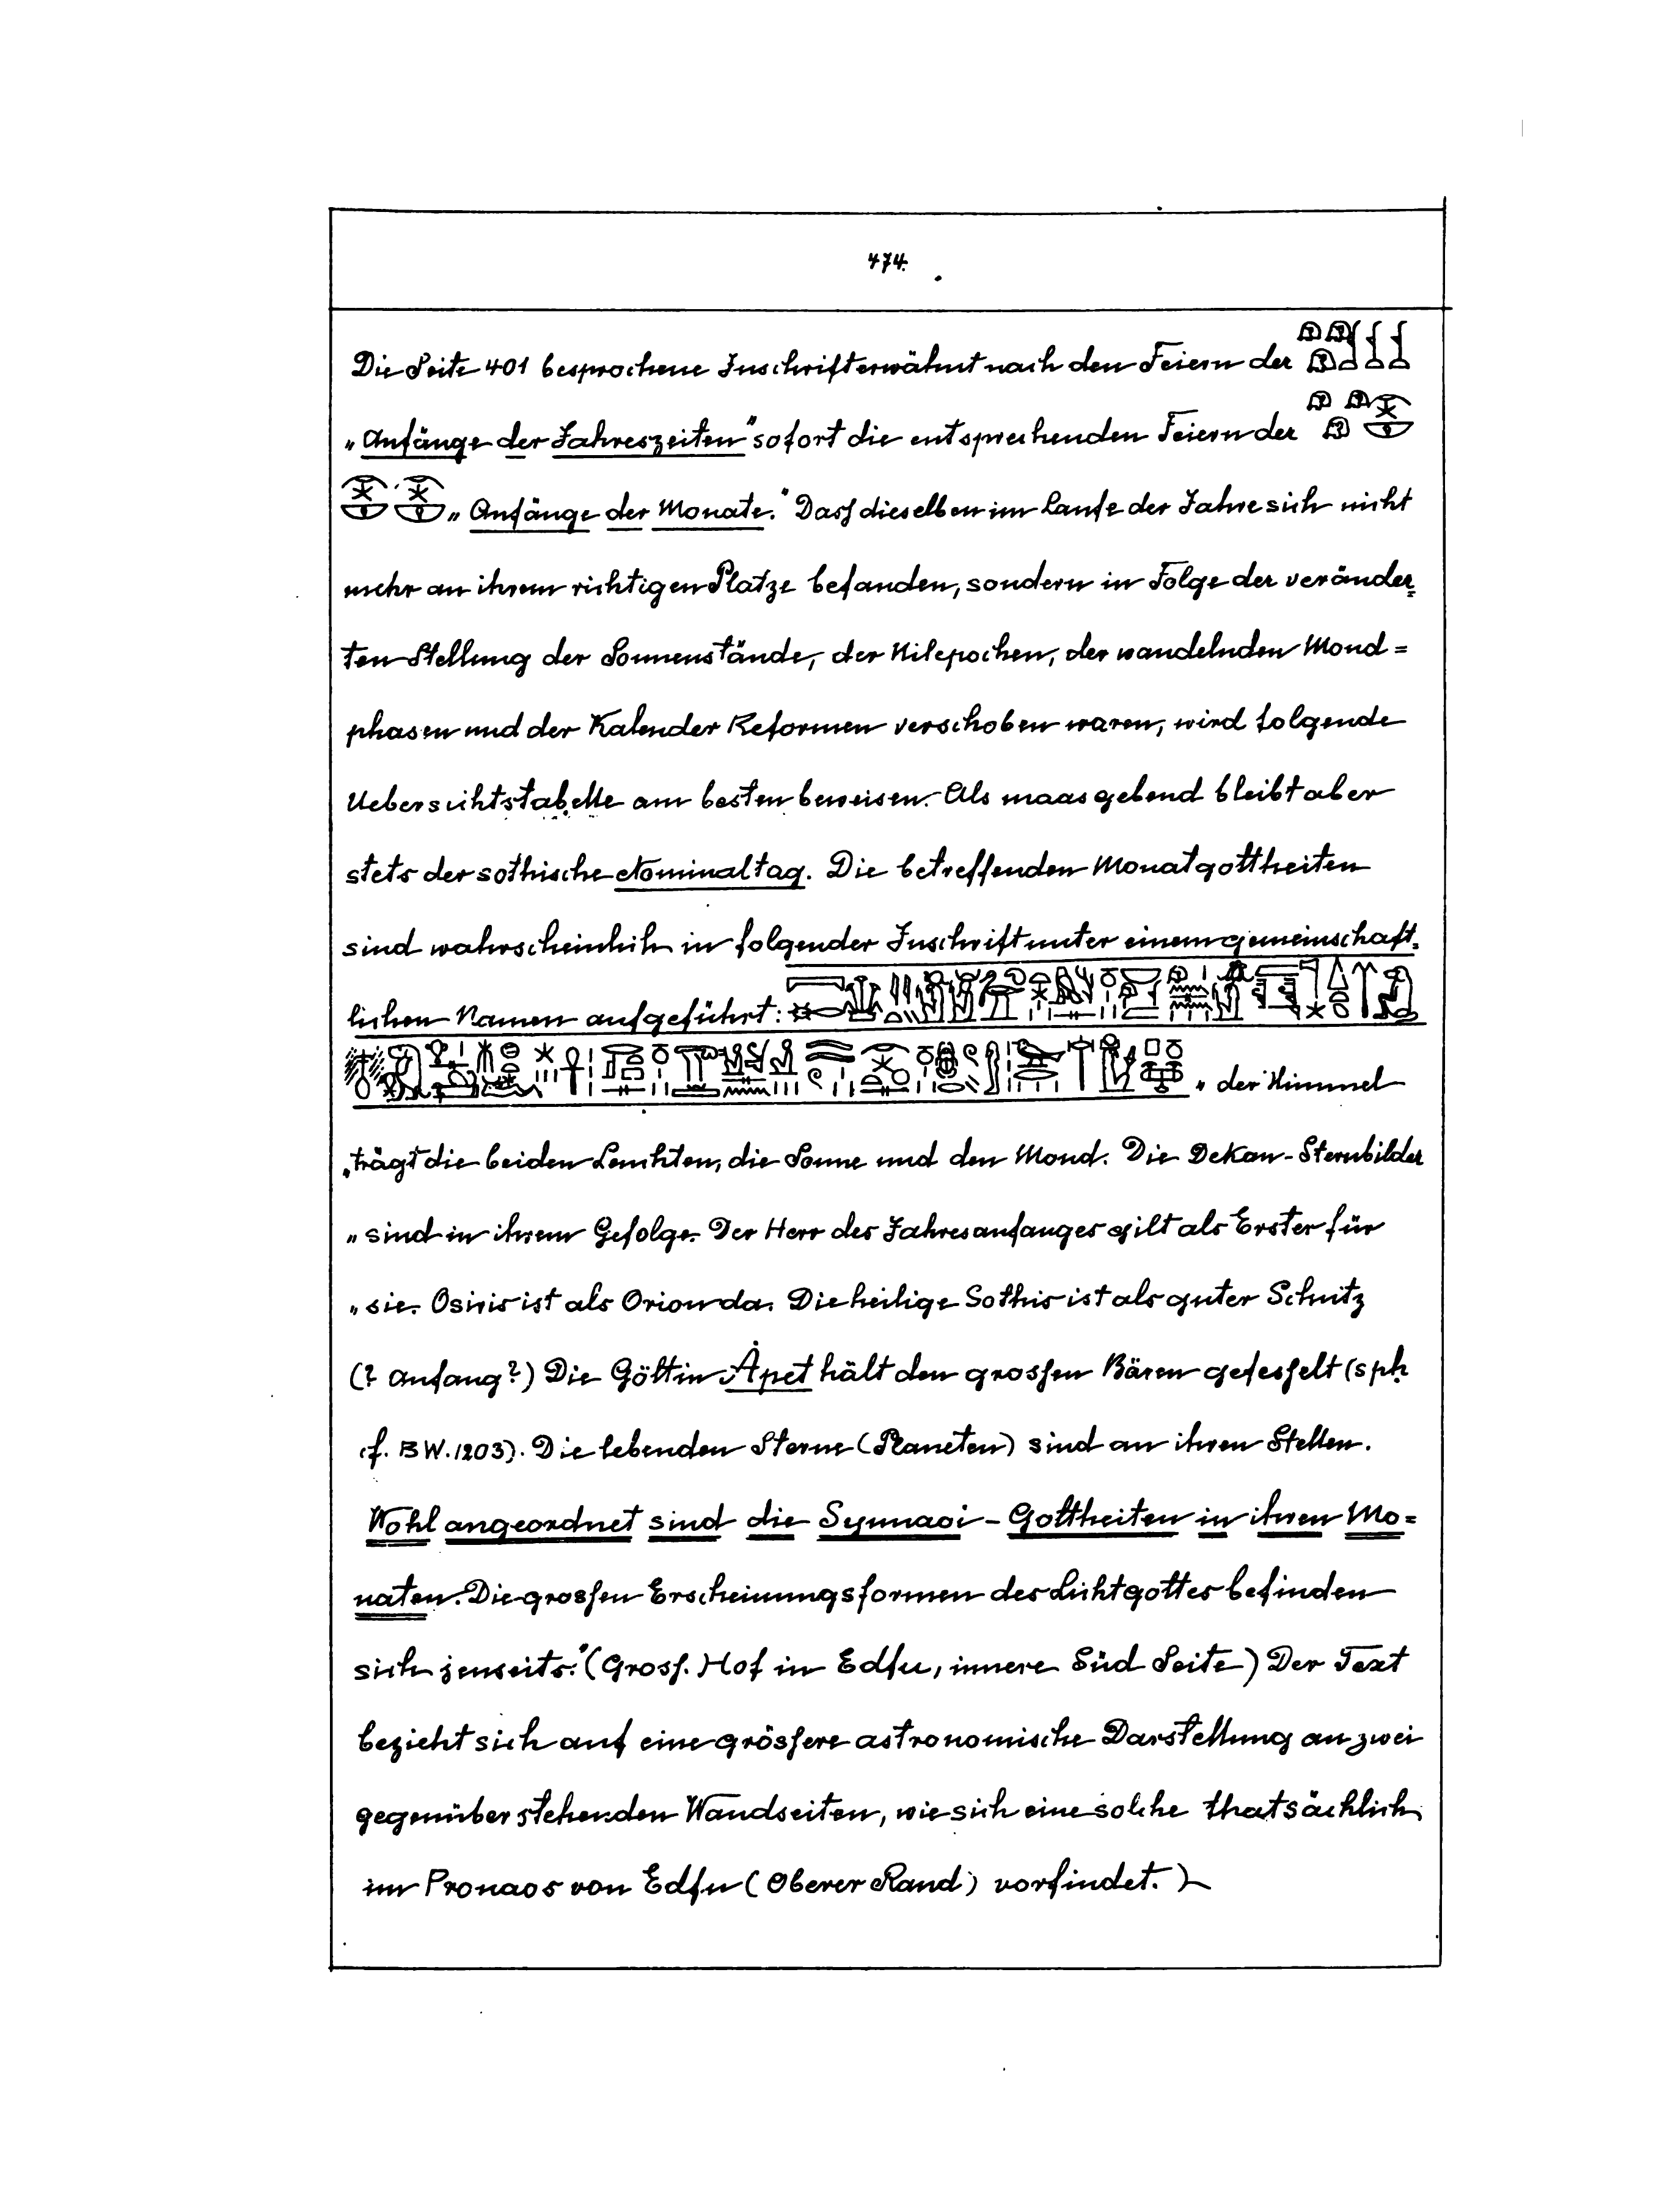 474.
Die Seite 401 besprochene Inschrift erwähnt nach den Feiern der
„Anfänge der Jahreszeiten" sofort die entsprechenden Feiern der
„Anfänge der Monate." Dass dieselben im Laufe der Jahre sich nicht
mehr an ihrem richtigen Platze befanden, sondern in Folge der veränder=
ten Stellung der Sonnenstände, der Nilepochen, der wandelnden Mond=
phasen und der Kalender Reformen verschoben waren, wird folgende
Uebersichtstabelle am besten beweisen. Als maasgebend bleibt aber
stets der sothische Nominaltag. Die betreffenden Monatgottheiten
sind wahrscheinlich in folgender Inschrift unter einem gemeinschaft=
lichen Namen aufgeführt:
„der Himmel
„trägt die beiden Leuchten, die Sonne und den Mond. Die Dekan-Sternbilder
„sind in ihrem Gefolge. Der Herr des Jahresanfanges gilt als Erster für
„sie. Osiris ist als Orion da. Die heilige Sothis ist als guter Schutz
(? Anfang?) Die Göttin Ȧpet hält den grossen Bären gefesselt (spḥ
cf. BW. 1203). Die lebenden Sterne (Planeten) sind an ihren Stellen.
Wohl angeordnet sind die Synnaoi-Gottheiten in ihren Mo=
naten. Die grossen Erscheinungsformen des Lichtgottes befinden
sich jenseits." (Gross. Hof in Edfu, innere Süd Seite) Der Text
bezieht sich auf eine grössere astronomische Darstellung an zwei
gegenüber stehenden Wandseiten, wie sich eine solche thatsächlich
im Pronaos von Edfu (Oberer Rand) vorfindet.)